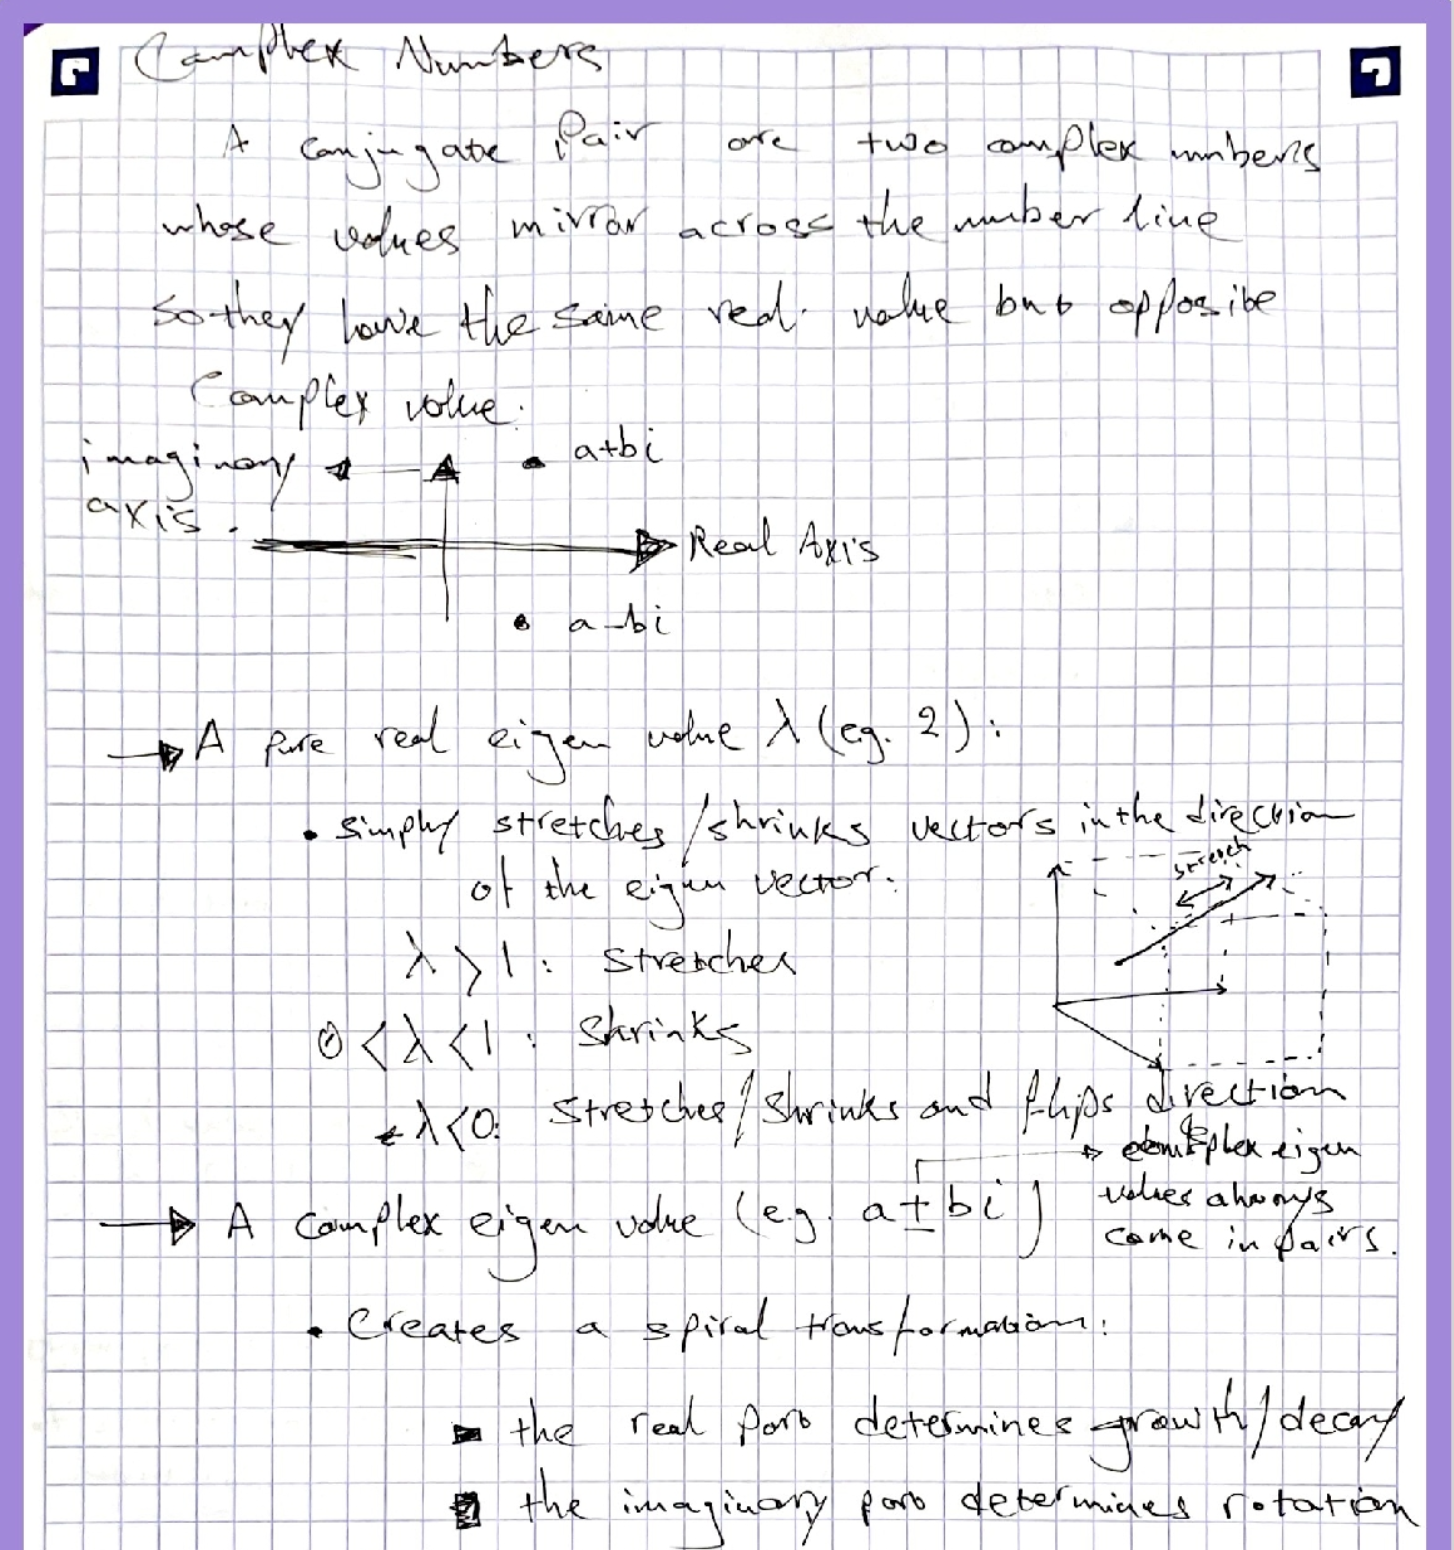 Complex Numbers
A conjugate Pair are two complex numbers
whose values mirror across the number line
so they have the same real value but opposite
Complex value.
imaginary
axis.
a+bi
Real Axis
a-bi
A pure real eigen value λ (eg. 2):
• simply stretches/shrinks vectors in the direction
of the eigen vector.
stretch
λ > 1: stretches
0 < λ < 1: Shrinks
λ < 0: Stretches/Shrinks and flips direction
A complex eigen value (e.g. a ± bi)
complex eigen
values always
come in pairs.
• Creates a spiral transformation:
the real part determines growth/decay
the imaginary part determines rotation